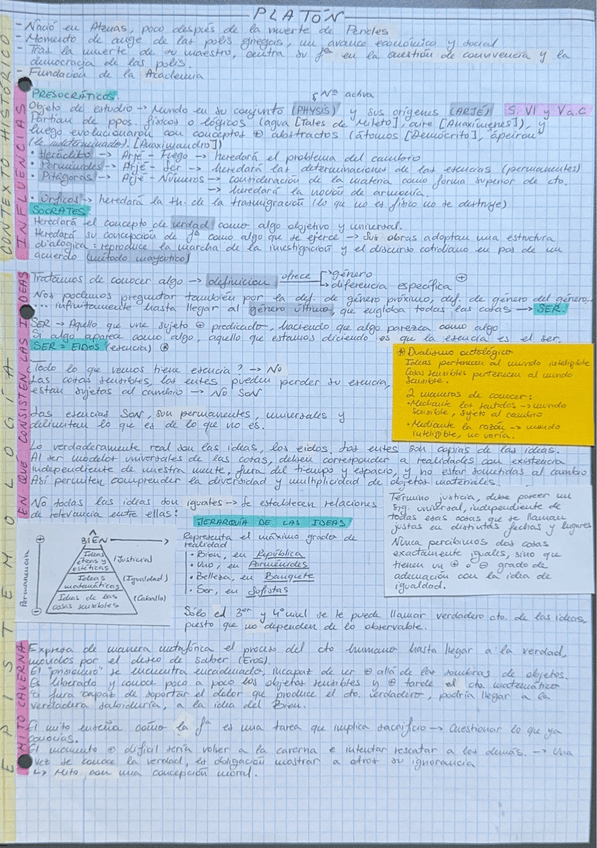 PLATÓN
CONTEXTO HISTÓRICO
- Nació en Atenas, poco después de la muerte de Pericles
- Momento de auge de las polis griegas, un avance económico y social
- Tras la muerte de su maestro, centra su fª en la cuestión de convivencia y la
democracia de las polis.
- Fundación de la Academia
INFLUENCIAS
PRESOCRÁTICOS
Nº activa
Objeto de estudio → Mundo en su conjunto (PHYSIS) y sus orígenes (ARJÉ) S. VI y V a.C
Partían de ppos. físicos o lógicos (agua [Tales de Mileto], aire [Anaxímenes]), y
luego evolucionaron con conceptos ⊕ abstractos (átomos [Demócrito], ápeiron
(lo indeterminado) [Anaximandro])
• Heráclito → Arjé - Fuego → heredará el problema del cambio
• Parménides → Arjé - Ser → heredará las determinaciones de las esencias (permanentes)
• Pitágoras → Arjé - Números → consideración de la materia como forma superior de cto.
→ heredará la noción de armonía.
• Órficos → heredará la th. de la transmigración (lo que no es físico no se destruye)
SÓCRATES
Heredará el concepto de verdad como algo objetivo y universal.
Heredará su concepción de fª como algo que se ejerce → Sus obras adoptan una estructura
dialógica: reproduce la marcha de la investigación y el discurso cotidiano en pos de un
acuerdo (método mayéutico)
EPISTEMOLOGÍA
EN QUE CONSISTEN LAS IDEAS
Tratamos de conocer algo → definición ofrece género
diferencia específica
Nos podemos preguntar también por la def. de género próximo, def. de género del género
... infinitamente hasta llegar al género último, que engloba todas las cosas → SER.
SER → Aquello que une sujeto ⊕ predicado, haciendo que algo parezca como algo
Si algo aparece como algo, aquello que estamos diciendo es que la esencia es el ser.
SER = EIDOS (esencia) ⊛
¿Todo lo que vemos tiene esencia? → No
Las cosas sensibles, los entes, pueden perder su esencia,
están sujetos al cambio → NO SON
Las esencias SON, son permanentes, universales y
delimitan lo que es de lo que no es.
⊛ Dualismo ontológico
Ideas pertenecen al mundo inteligible
Cosas sensibles pertenecen al mundo
sensible.
2 maneras de conocer:
• Mediante los sentidos → mundo
sensible, sujeto al cambio
• Mediante la razón → mundo
inteligible, no varía.
Lo verdaderamente real son las ideas, los eidos, los entes son copias de las ideas.
Al ser modelos universales de las cosas, deben corresponder a realidades con existencia
independiente de nuestra mente, fuera del tiempo y espacio, y no estar sometidas al cambio
Así permiten comprender la diversidad y multiplicidad de objetos materiales.
No todas las ideas son iguales → Se establecen relaciones
de relevancia entre ellas:
Término justicia, debe poseer un
sig. universal, independiente de
todas esas cosas que se llaman
justas en distintas fechas y lugares
Nunca percibimos dos cosas
exactamente iguales, sino que
tienen un ⊕ o ⊖ grado de
adecuación con la idea de
igualdad.
JERARQUÍA DE LAS IDEAS
Permanencia
BIEN
Ideas éticas y estéticas (Justicia)
Ideas matemáticas (Igualdad)
Ideas de las cosas sensibles (Caballo)
Representa el máximo grado de
realidad
• Bien, en República
• Uno, en Parménides
• Belleza, en Banquete
• Ser, en Sofistas
Sólo el 3er y 4º nivel se le puede llamar verdadero cto. de las ideas,
puesto que no dependen de lo observable.
MITO CAVERNA
Expresa de manera metafórica el proceso del cto humano hasta llegar a la verdad,
movidos por el deseo de saber (Eros).
El "prisionero" se encuentra encadenado, incapaz de ver ⊕ allá de las sombras de objetos.
Es liberado y conoce poco a poco los objetos sensibles y ⊕ tarde el cto matemático
Si fuera capaz de soportar el dolor que produce el cto. verdadero, podría llegar a la
verdadera sabiduría, a la idea del Bien.
El mito enseña cómo la fª es una tarea que implica sacrificio → Cuestionar lo que ya
conocías.
El momento ⊕ difícil sería volver a la caverna e intentar rescatar a los demás. → Una
vez se conoce la verdad, es obligación mostrar a otros su ignorancia
↳ Mito con una concepción moral.